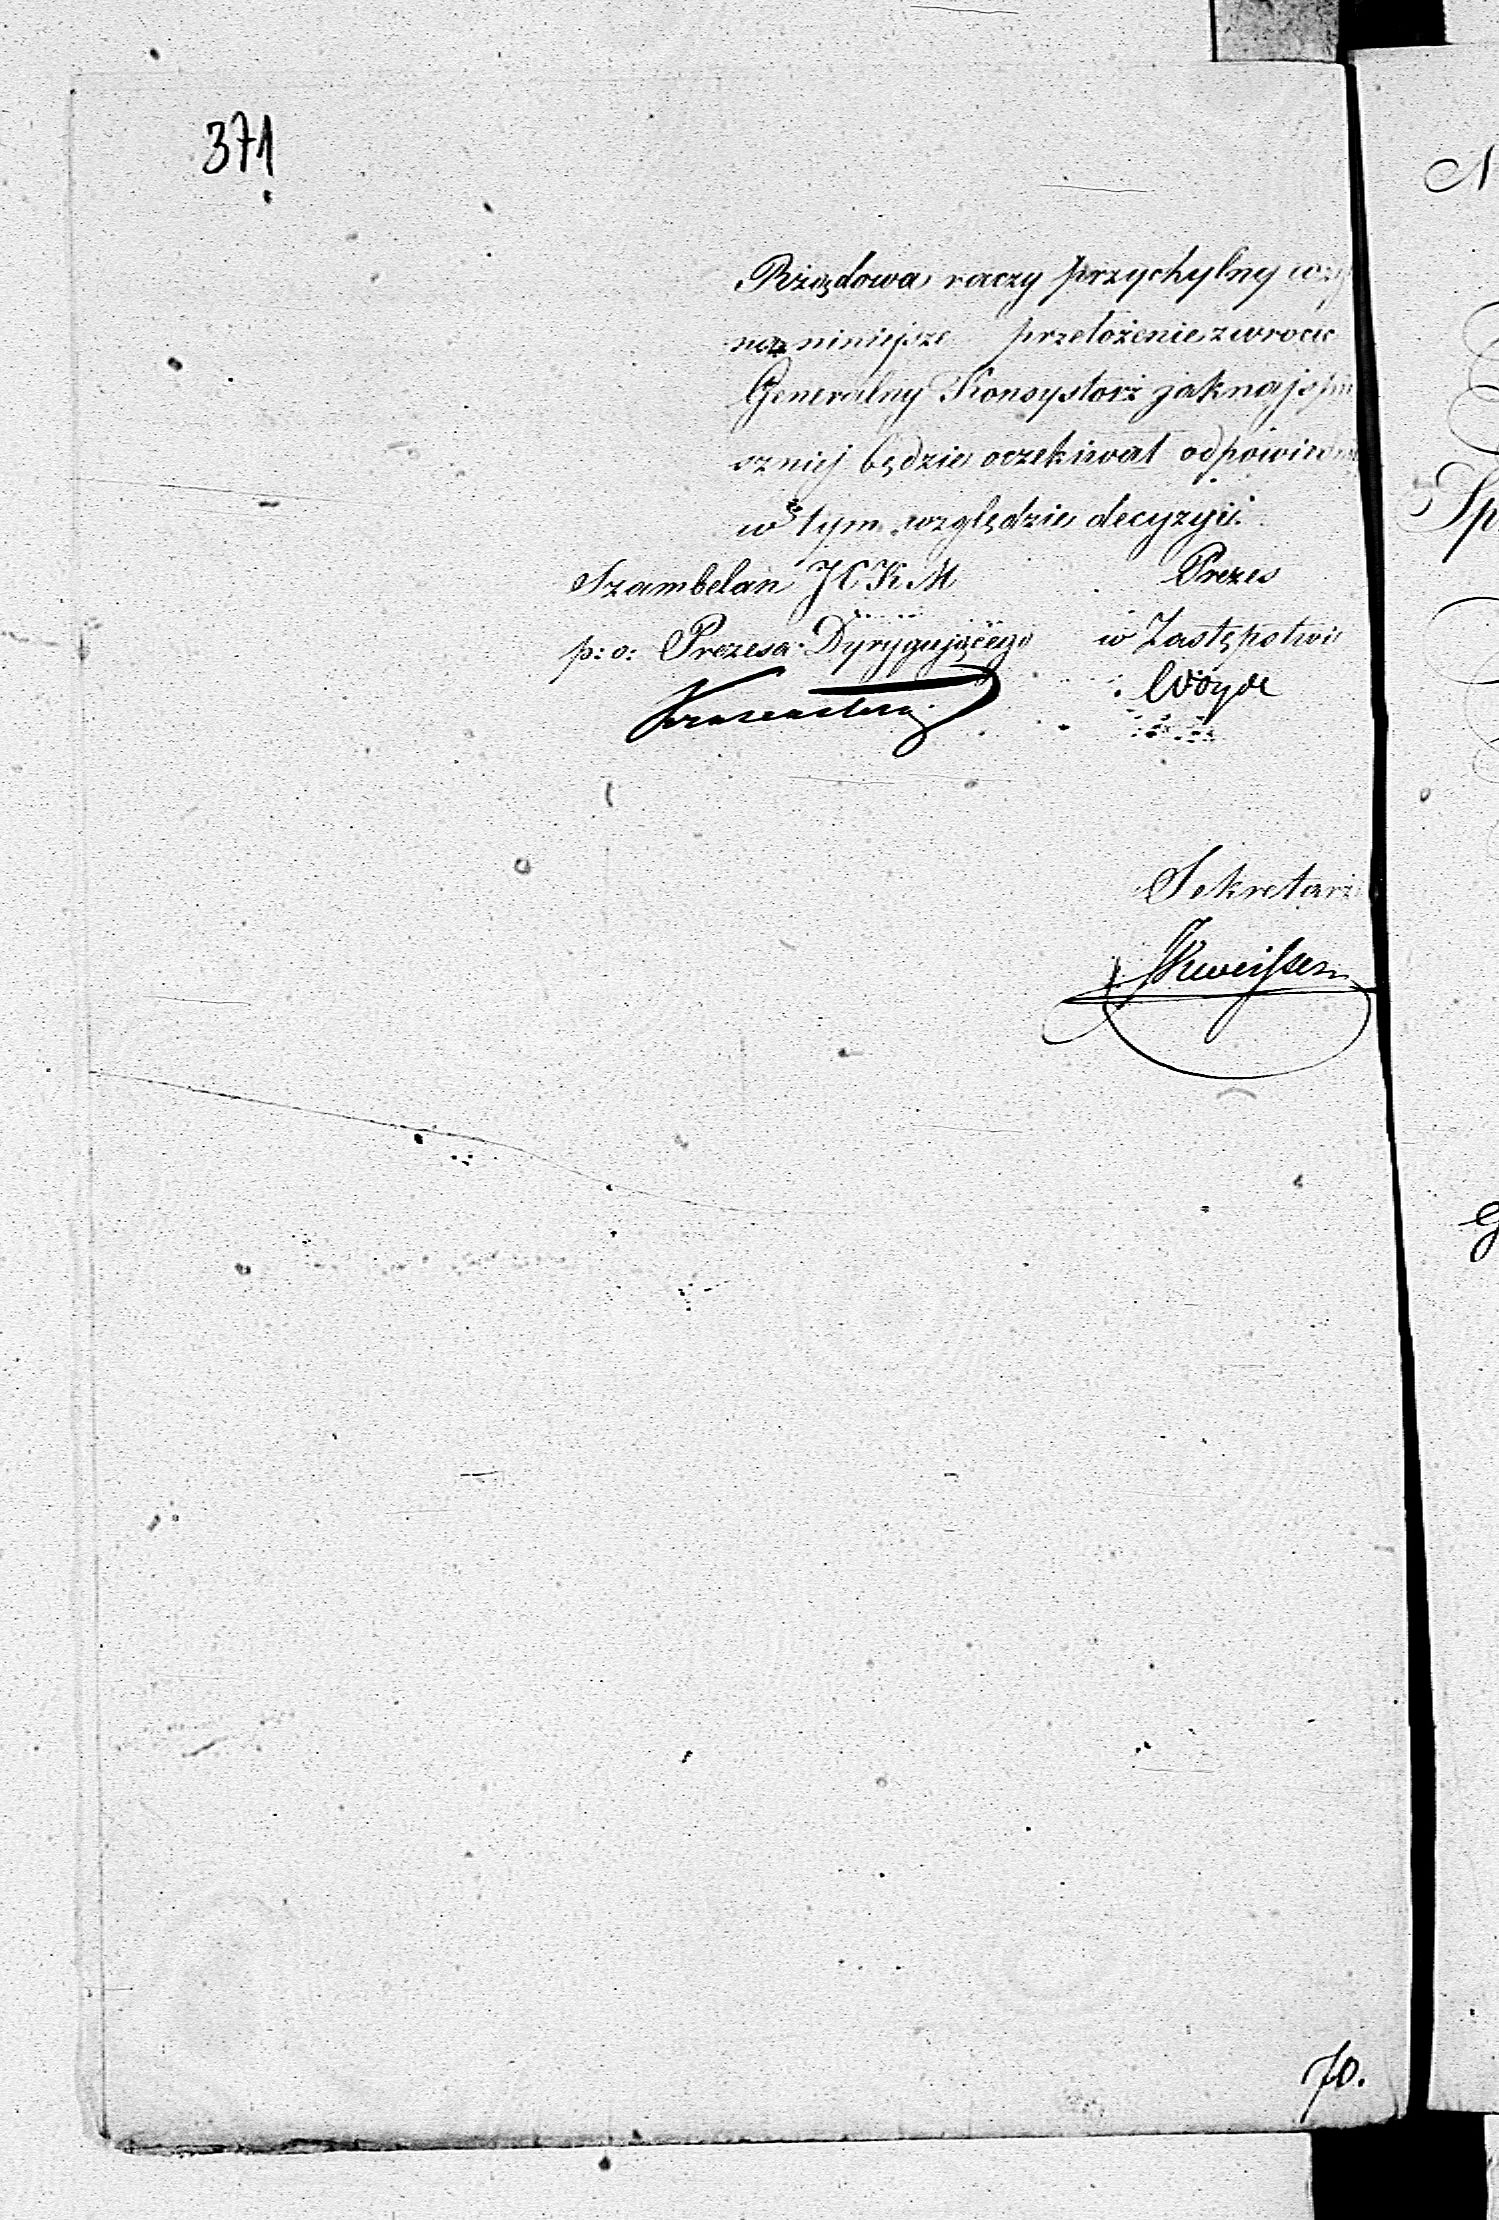 371
Rżądowa raczy przychylny wzg
na niniejsze przełożenie zwrócić
Generalny Konsystorż jaknajspie
szniej będzie oczekiwał odpowied
w tym względzie decyzyi.
Szambelan JCKM Prezes
p: o: Prezesa Dyrygującego w Zastępstwie
Woyde
Sekretarz
70.